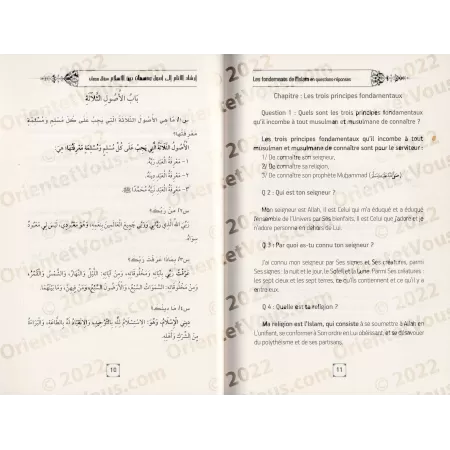 باب الأصول الثلاثة
س١/ ما الأصول الثلاثة التي يجب على كل مسلم ومسلمة
معرفتها؟
الأصول الثلاثة التي يجب على كل مسلم ومسلمة معرفتها، هي:
١- معرفة العبد ربه.
٢- معرفة العبد دينه.
٣- معرفة العبد نبيه محمدا ﷺ.
س٢/ من ربك؟
ربي الله الذي رباني وربى جميع العالمين بنعمه، وهو معبودي، ليس لي معبود
سواه.
س٣/ بماذا عرفت ربك؟
عرفت ربي بآياته ومخلوقاته، ومن آياته: الليل والنهار، والشمس والقمر،
ومن مخلوقاته: السموات السبع، والأرضون السبع، ومن فيهن، وما بينهما.
س٤/ ما دينك؟
ديني الإسلام، وهو: الاستسلام لله بالتوحيد، والانقياد له بالطاعة، والبراءة
من الشرك وأهله.
10
Les fondements de l'Islam en questions-réponses
Chapitre : Les trois principes fondamentaux
Question 1 : Quels sont les trois principes fondamentaux
qu'il incombe à tout musulman et musulmane de connaître ?
Les trois principes fondamentaux qu'il incombe à tout
musulman et musulmane de connaître sont pour le serviteur :
1/ De connaître son seigneur,
2/ De connaître sa religion,
3/ De connaître son prophète Muhammad (ﷺ).
Q 2 : Qui est ton seigneur ?
Mon seigneur est Allah, Il est Celui qui m'a éduqué et a éduqué
l'ensemble de l'Univers par Ses bienfaits, Il est Celui que j'adore et je
n'adore personne en dehors de Lui.
Q 3 : Par quoi as-tu connu ton seigneur ?
J'ai connu mon seigneur par Ses signes et Ses créatures, parmi
Ses signes : la nuit et le jour, le Soleil et la Lune. Parmi Ses créatures :
les sept cieux et les sept terres, ce qu'ils contiennent et ce qu'il y a
entre eux.
Q 4 : Quelle est ta religion ?
Ma religion est l'Islam, qui consiste à se soumettre à Allah en
L'unifiant, se conformer à Son ordre en Lui obéissant, et se désavouer
du polythéisme et de ses partisans.
11
OrientetVous.com © 2022